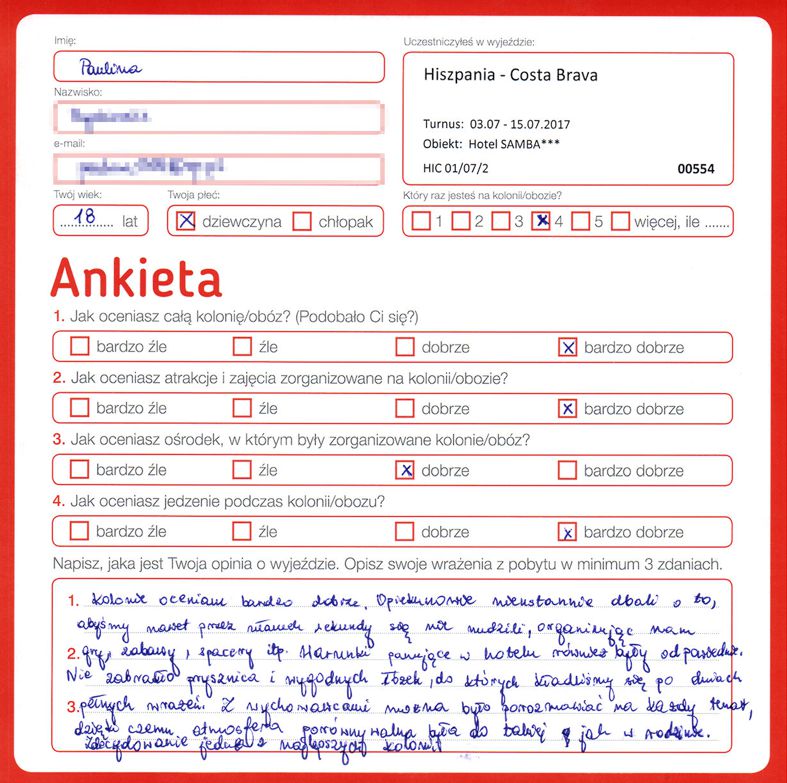 Imię:
Paulina
Uczestniczyłeś w wyjeździe:
Hiszpania - Costa Brava
Turnus: 03.07 - 15.07.2017
Obiekt: Hotel SAMBA***
HIC 01/07/2 00554
Nazwisko:
e-mail:
Twój wiek:
18 lat
Twoja płeć:
dziewczyna chłopak
Który raz jesteś na kolonii/obozie?
1 2 3 4 5 więcej, ile .......
Ankieta
1. Jak oceniasz całą kolonię/obóz? (Podobało Ci się?)
bardzo źle źle dobrze bardzo dobrze
2. Jak oceniasz atrakcje i zajęcia zorganizowane na kolonii/obozie?
bardzo źle źle dobrze bardzo dobrze
3. Jak oceniasz ośrodek, w którym były zorganizowane kolonie/obóz?
bardzo źle źle dobrze bardzo dobrze
4. Jak oceniasz jedzenie podczas kolonii/obozu?
bardzo źle źle dobrze bardzo dobrze
Napisz, jaka jest Twoja opinia o wyjeździe. Opisz swoje wrażenia z pobytu w minimum 3 zdaniach.
1. Kolonie oceniam bardzo dobrze. Opiekunowie nieustannie dbali o to,
abyśmy nawet przez ułamek sekundy się nie nudzili, organizując nam
2. gry, zabawy, spacery itp. Warunki panujące w hotelu również były odpowiednie.
Nie zabrakło prysznica i wygodnych łóżek, do których kładliśmy się po dniach
3. pełnych wrażeń. Z wychowawcami można było porozmawiać na każdy temat,
dzięki czemu atmosfera porównywalna była do takiej jak w rodzinie.
Zdecydowanie jedna z najlepszych kolonii!